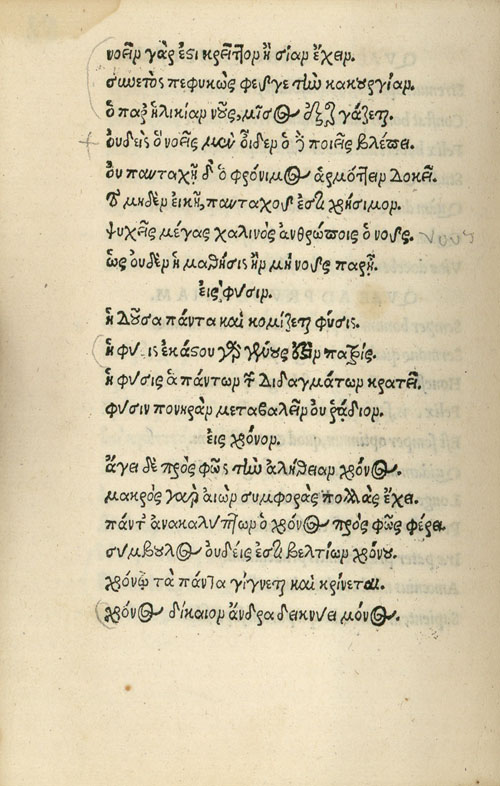 νοεῖν γάρ ἐστι κρεῖττον ἢ σιγὰν ἔχειν.
συνετὸς πεφυκὼς φεῦγε τὴν κακουργίαν.
ὁ παρ᾽ ἡλικίαν νοῦς, μῖσος ἐξεργάζεται.
οὐδεὶς ὃ νοεῖς μὲν οἶδεν ὃ δὲ ποιεῖς βλέπει.
οὐ πανταχῆ δ᾽ ὁ φρόνιμος ἁρμόττειν δοκεῖ.
τὸ μηδὲν εἰκῆ, πανταχοῦ ἐστι χρήσιμον.
ψυχῆς μέγας χαλινὸς ἀνθρώποις ὁ νοῦς.
ὡς οὐδὲν ἡ μάθησις ἢν μὴ νοῦς παρῇ.
εἰς φύσιν.
ἡ δοῦσα πάντα καὶ κομίζεται φύσις.
ἡ φύσις ἑκάστου τοῦ γένους ἐστὶν πατρίς.
ἡ φύσις ἁπάντων τῶν διδαγμάτων κρατεῖ.
φύσιν πονηρὰν μεταβαλεῖν οὐ ῥᾴδιον.
εἰς χρόνον.
ἄγει δὲ πρὸς φῶς τὴν ἀλήθειαν χρόνος.
μακρὸς γὰρ αἰὼν συμφορὰς πολλὰς ἔχει.
πάντ᾽ ἀνακαλύπτων ὁ χρόνος πρὸς φῶς φέρει.
σύμβουλος οὐδείς ἐστι βελτίων χρόνου.
χρόνῳ τὰ πάντα γίγνεται καὶ κρίνεται.
χρόνος δίκαιον ἄνδρα δείκνυει μόνος.